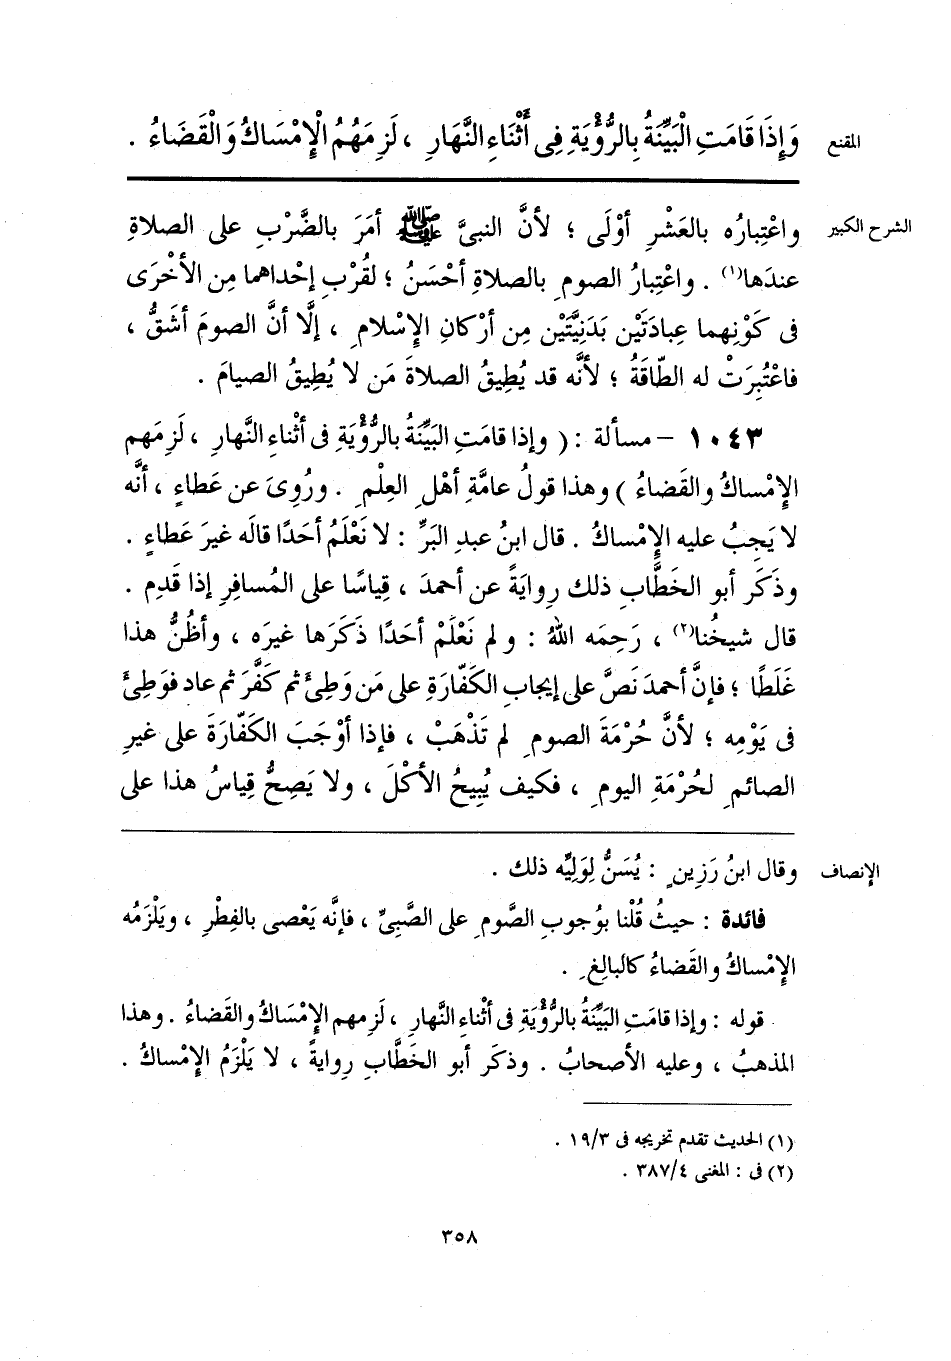 المقنع وَإِذَا قَامَتِ الْبَيِّنَةُ بِالرُّؤْيَةِ فِى أَثْنَاءِ النَّهَارِ ، لَزِمَهُمُ الْإِمْسَاكُ وَالْقَضَاءُ .
الشرح الكبير واعْتِبارُه بالعَشْرِ أوْلَى ؛ لأنَّ النبىَّ ﷺ أمَرَ بالضَّرْبِ على الصلاةِ
عندَها(١) . واعْتِبارُ الصومِ بالصلاةِ أحْسَنُ ؛ لقُرْبِ إحْداهما مِن الأخْرَى
فى كَوْنِهما عِبادَتَيْن بَدَنِيَّتَيْن مِن أرْكانِ الإِسْلامِ ، إلَّا أنَّ الصومَ أشَقُّ ،
فاعْتُبِرَتْ له الطّاقَةُ ؛ لأنَّه قد يُطِيقُ الصلاةَ مَن لا يُطِيقُ الصيامَ .
١٠٤٣ – مسألة : ( وإذا قامَتِ البَيِّنَةُ بالرُّؤْيَةِ فى أثْناءِ النَّهارِ ، لَزِمَهم
الإِمْساكُ والقَضاءُ ) وهذا قولُ عامَّةِ أهْلِ العِلْمِ . ورُوِىَ عن عَطاءٍ ، أنَّه
لا يَجِبُ عليه الإِمْساكُ . قال ابنُ عبدِ البَرِّ : لا نَعْلَمُ أحَدًا قالَه غيرَ عَطاءٍ .
وذَكَر أبو الخَطَّابِ ذلك رِوايَةً عن أحمدَ ، قِياسًا على المُسافِرِ إذا قَدِم .
قال شيخُنا(٢) ، رَحِمَه اللهُ : و لم نَعْلَمْ أحَدًا ذَكَرَها غيرَه ، وأظُنُّ هذا
غَلَطًا ؛ فإنَّ أحمدَ نَصَّ على إيجابِ الكَفّارَةِ على مَن وَطِئَ ثم كَفَّرَ ثم عاد فوَطِئَ
فى يَوْمِه ؛ لأنَّ حُرْمَةَ الصومِ لم تَذْهَبْ ، فإذا أوْجَبَ الكَفّارَةَ على غيرِ
الصائمِ لحُرْمَةِ اليومِ ، فكيف يُبِيحُ الأكْلَ ، ولا يَصِحُّ قِياسُ هذا على
الإنصاف وقال ابنُ رَزِينٍ : يُسَنُّ لِوَلِيِّه ذلك .
فائدة : حيثُ قُلْنا بوُجوبِ الصَّومِ على الصَّبِىِّ ، فإنَّه يَعْصى بالفِطْرِ ، ويَلْزَمُه
الإِمْساكُ والقَضاءُ كالبالِغِ .
قوله : وإذا قامَتِ البَيِّنَةُ بالرُّؤْيَةِ فى أثْناءِ النَّهارِ ، لَزِمهم الإِمْسَاكُ والقَضاءُ . وهذا
المذهبُ ، وعليه الأصحابُ . وذكَر أبو الخَطَّابِ رِوايةً ، لا يَلْزَمُ الإِمْساكُ .
(١) الحديث تقدم تخريجه فى ١٩/٣ .
(٢) فى : المغنى ٣٨٧/٤ .
٣٥٨